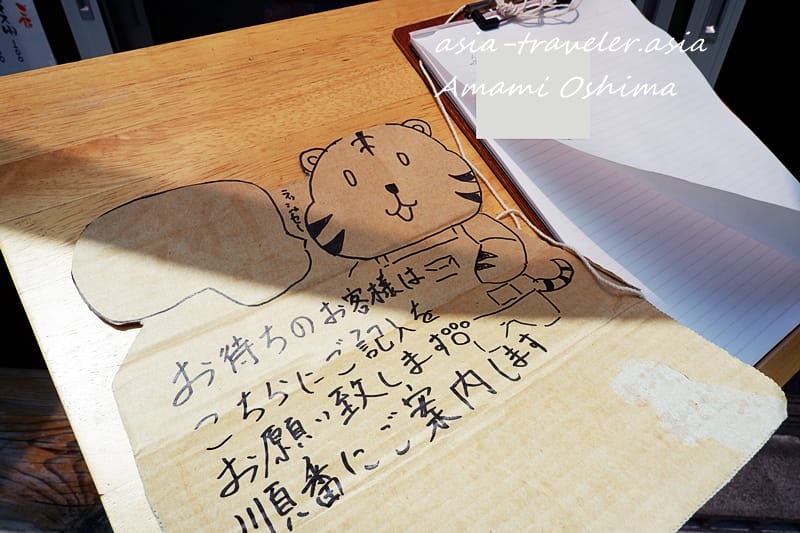 asia-traveler.asia
Amami Oshima
お待ちのお客様は
こちらにご記入を
お願い致します。
順番にご案内します